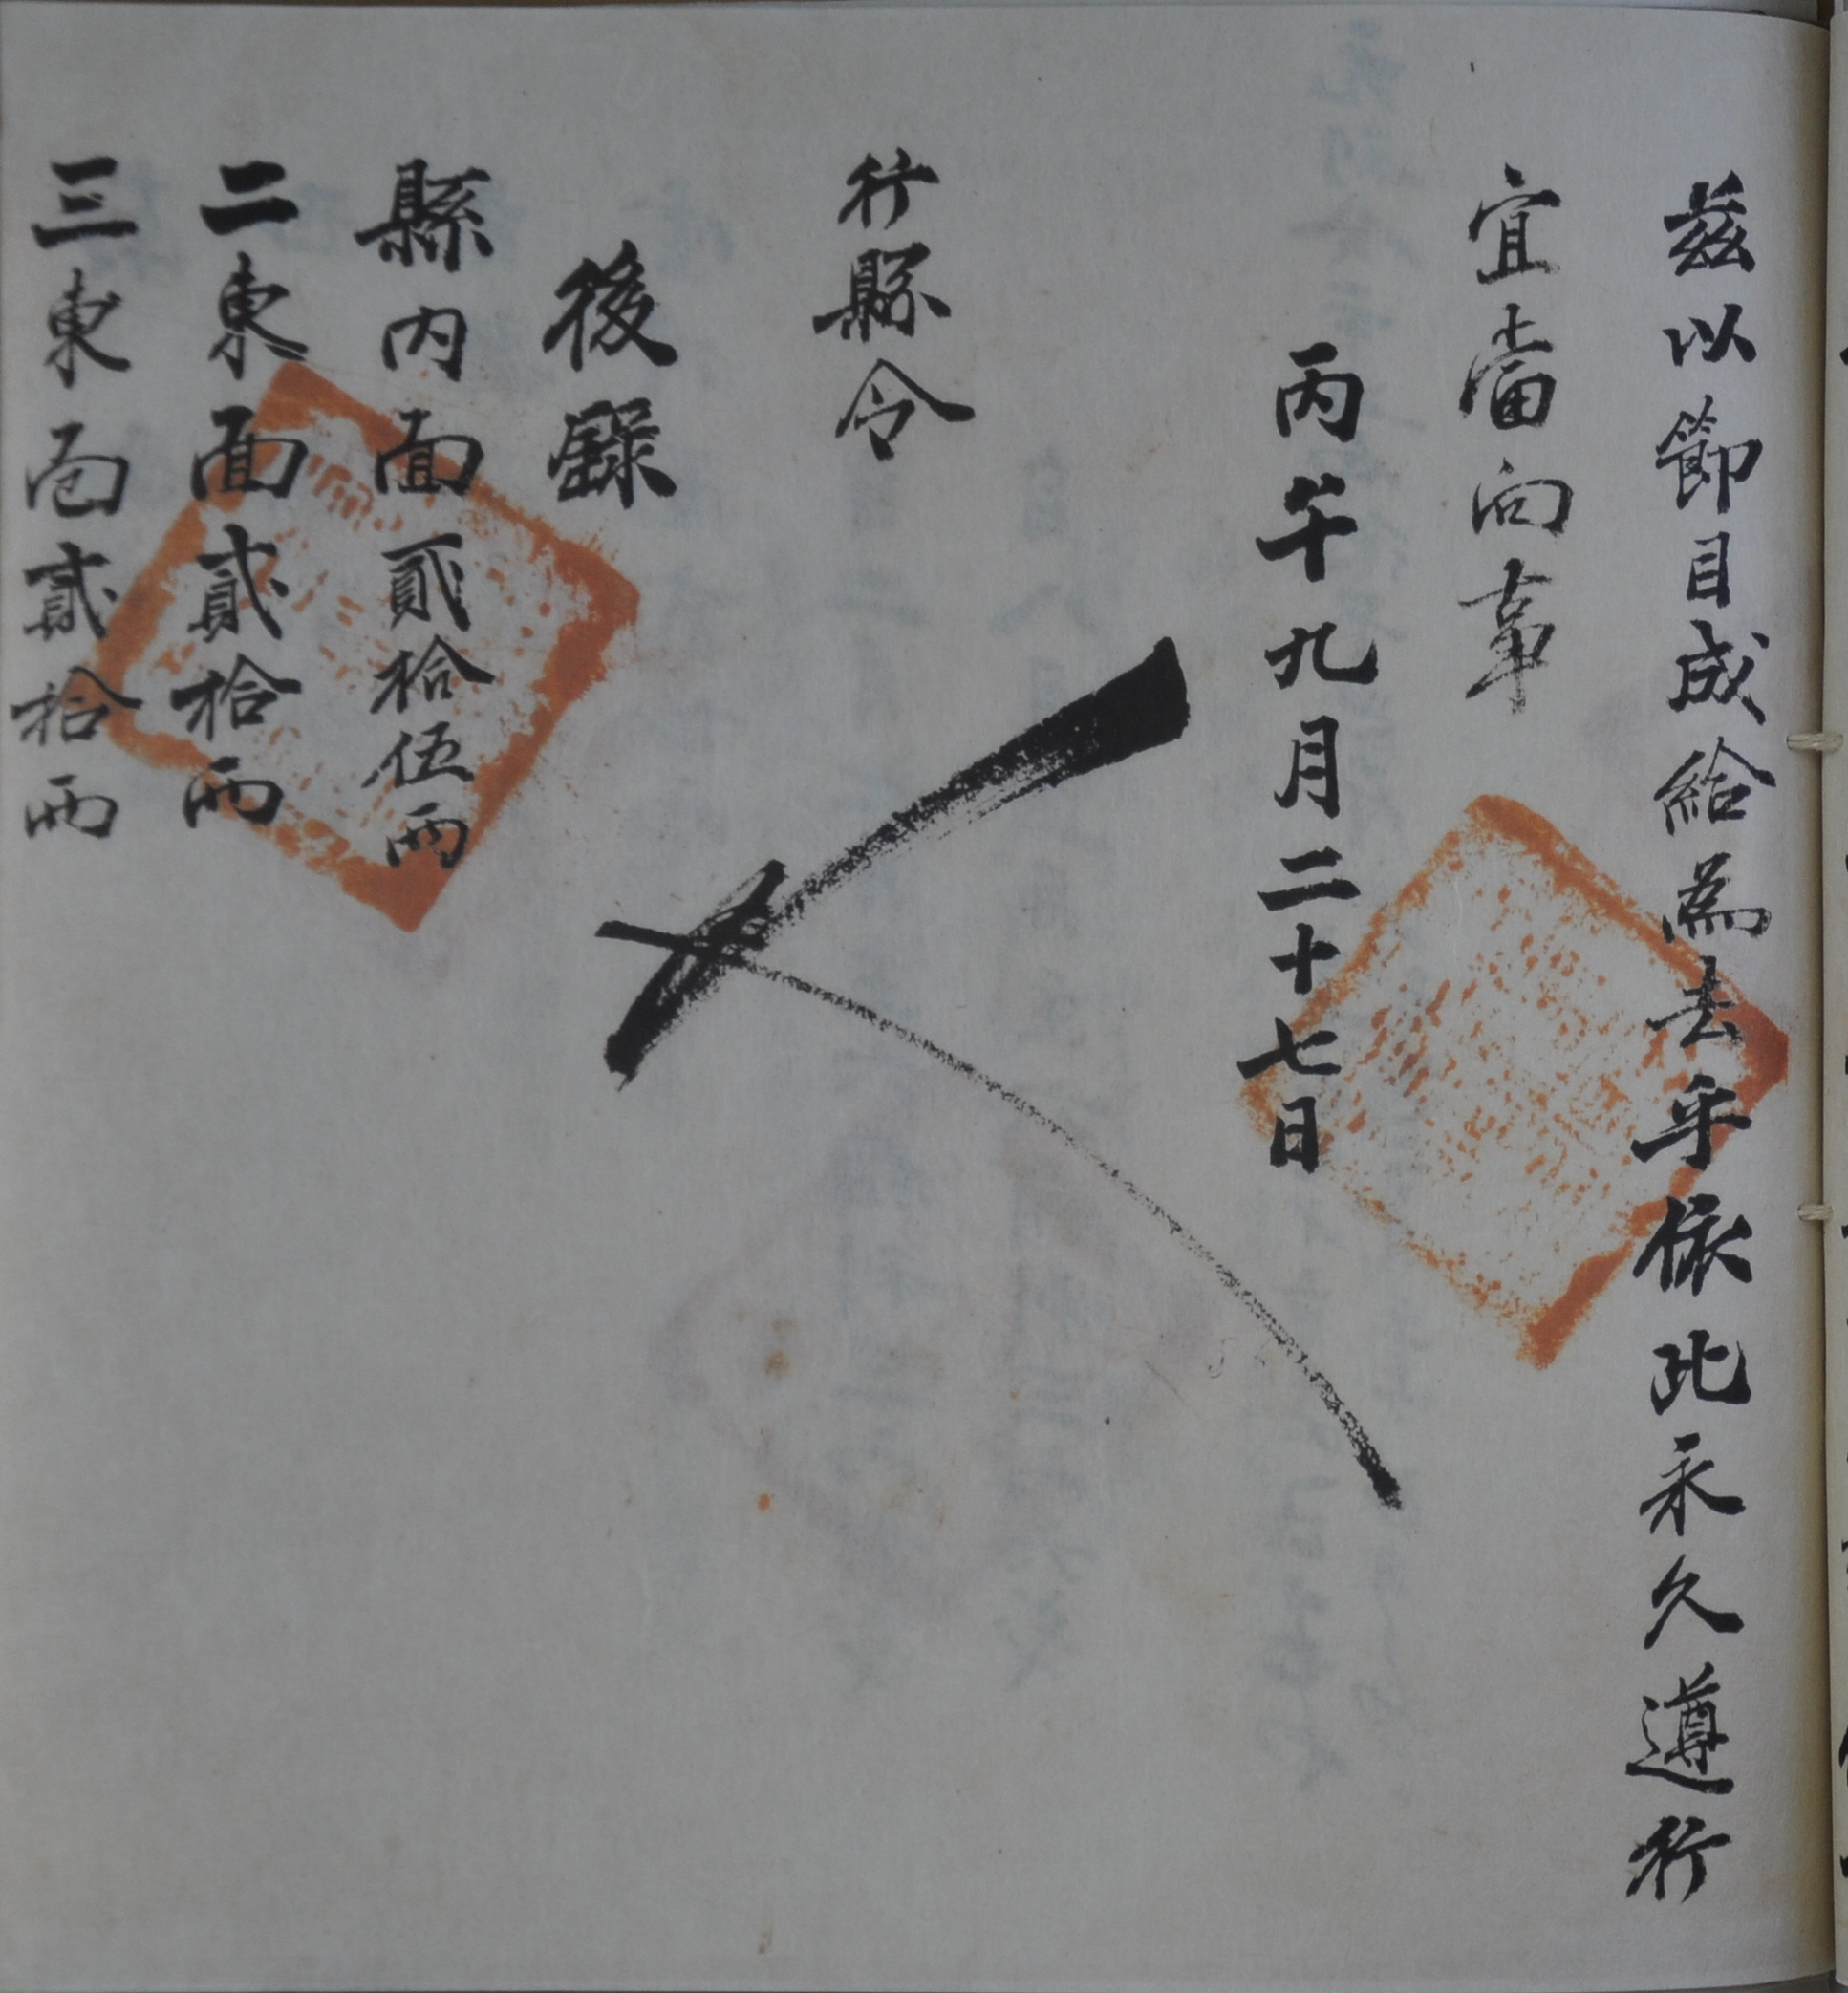 玆以節目成給爲去乎依此永久遵行
宜當向事
丙午九月二十七日
行縣令
後錄
縣內面貳拾伍兩
二東面貳拾兩
三東面貳拾兩